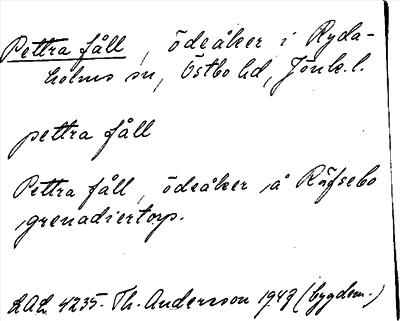 Pettra fåll, ödeåker i Ryda-
holms sn, Östbo hd, Jönk. l.
pettra fåll
Pettra fåll, ödeåker å Räfsebo
grenadiertorp.
LAL 4235. Th. Andersson 1949 (bygdem.)